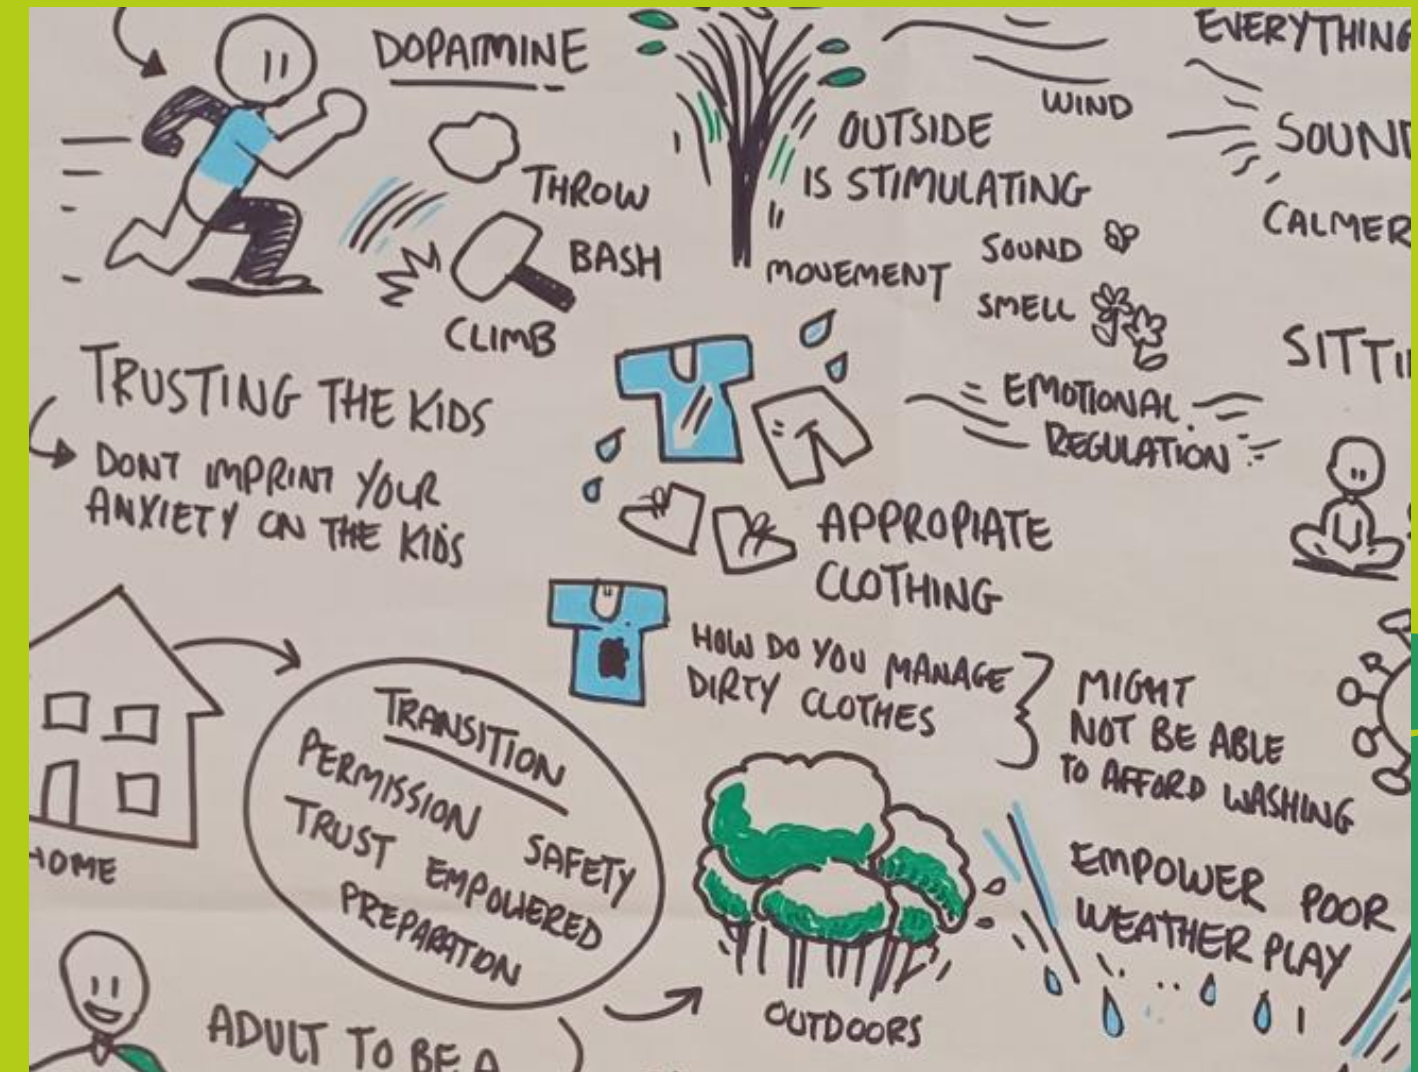 DOPAMINE
THROW
BASH
CLIMB
OUTSIDE
IS STIMULATING
MOVEMENT
SOUND
SMELL
WIND
EVERYTHING
SOUND
CALMER
SITTI
EMOTIONAL
REGULATION
TRUSTING THE KIDS
DONT IMPRINT YOUR
ANXIETY ON THE KIDS
APPROPIATE
CLOTHING
HOW DO YOU MANAGE
DIRTY CLOTHES
MIGHT
NOT BE ABLE
TO AFFORD WASHING
HOME
TRANSITION
PERMISSION SAFETY
TRUST EMPOWERED
PREPARATION
OUTDOORS
EMPOWER POOR
WEATHER PLAY
ADULT TO BE A